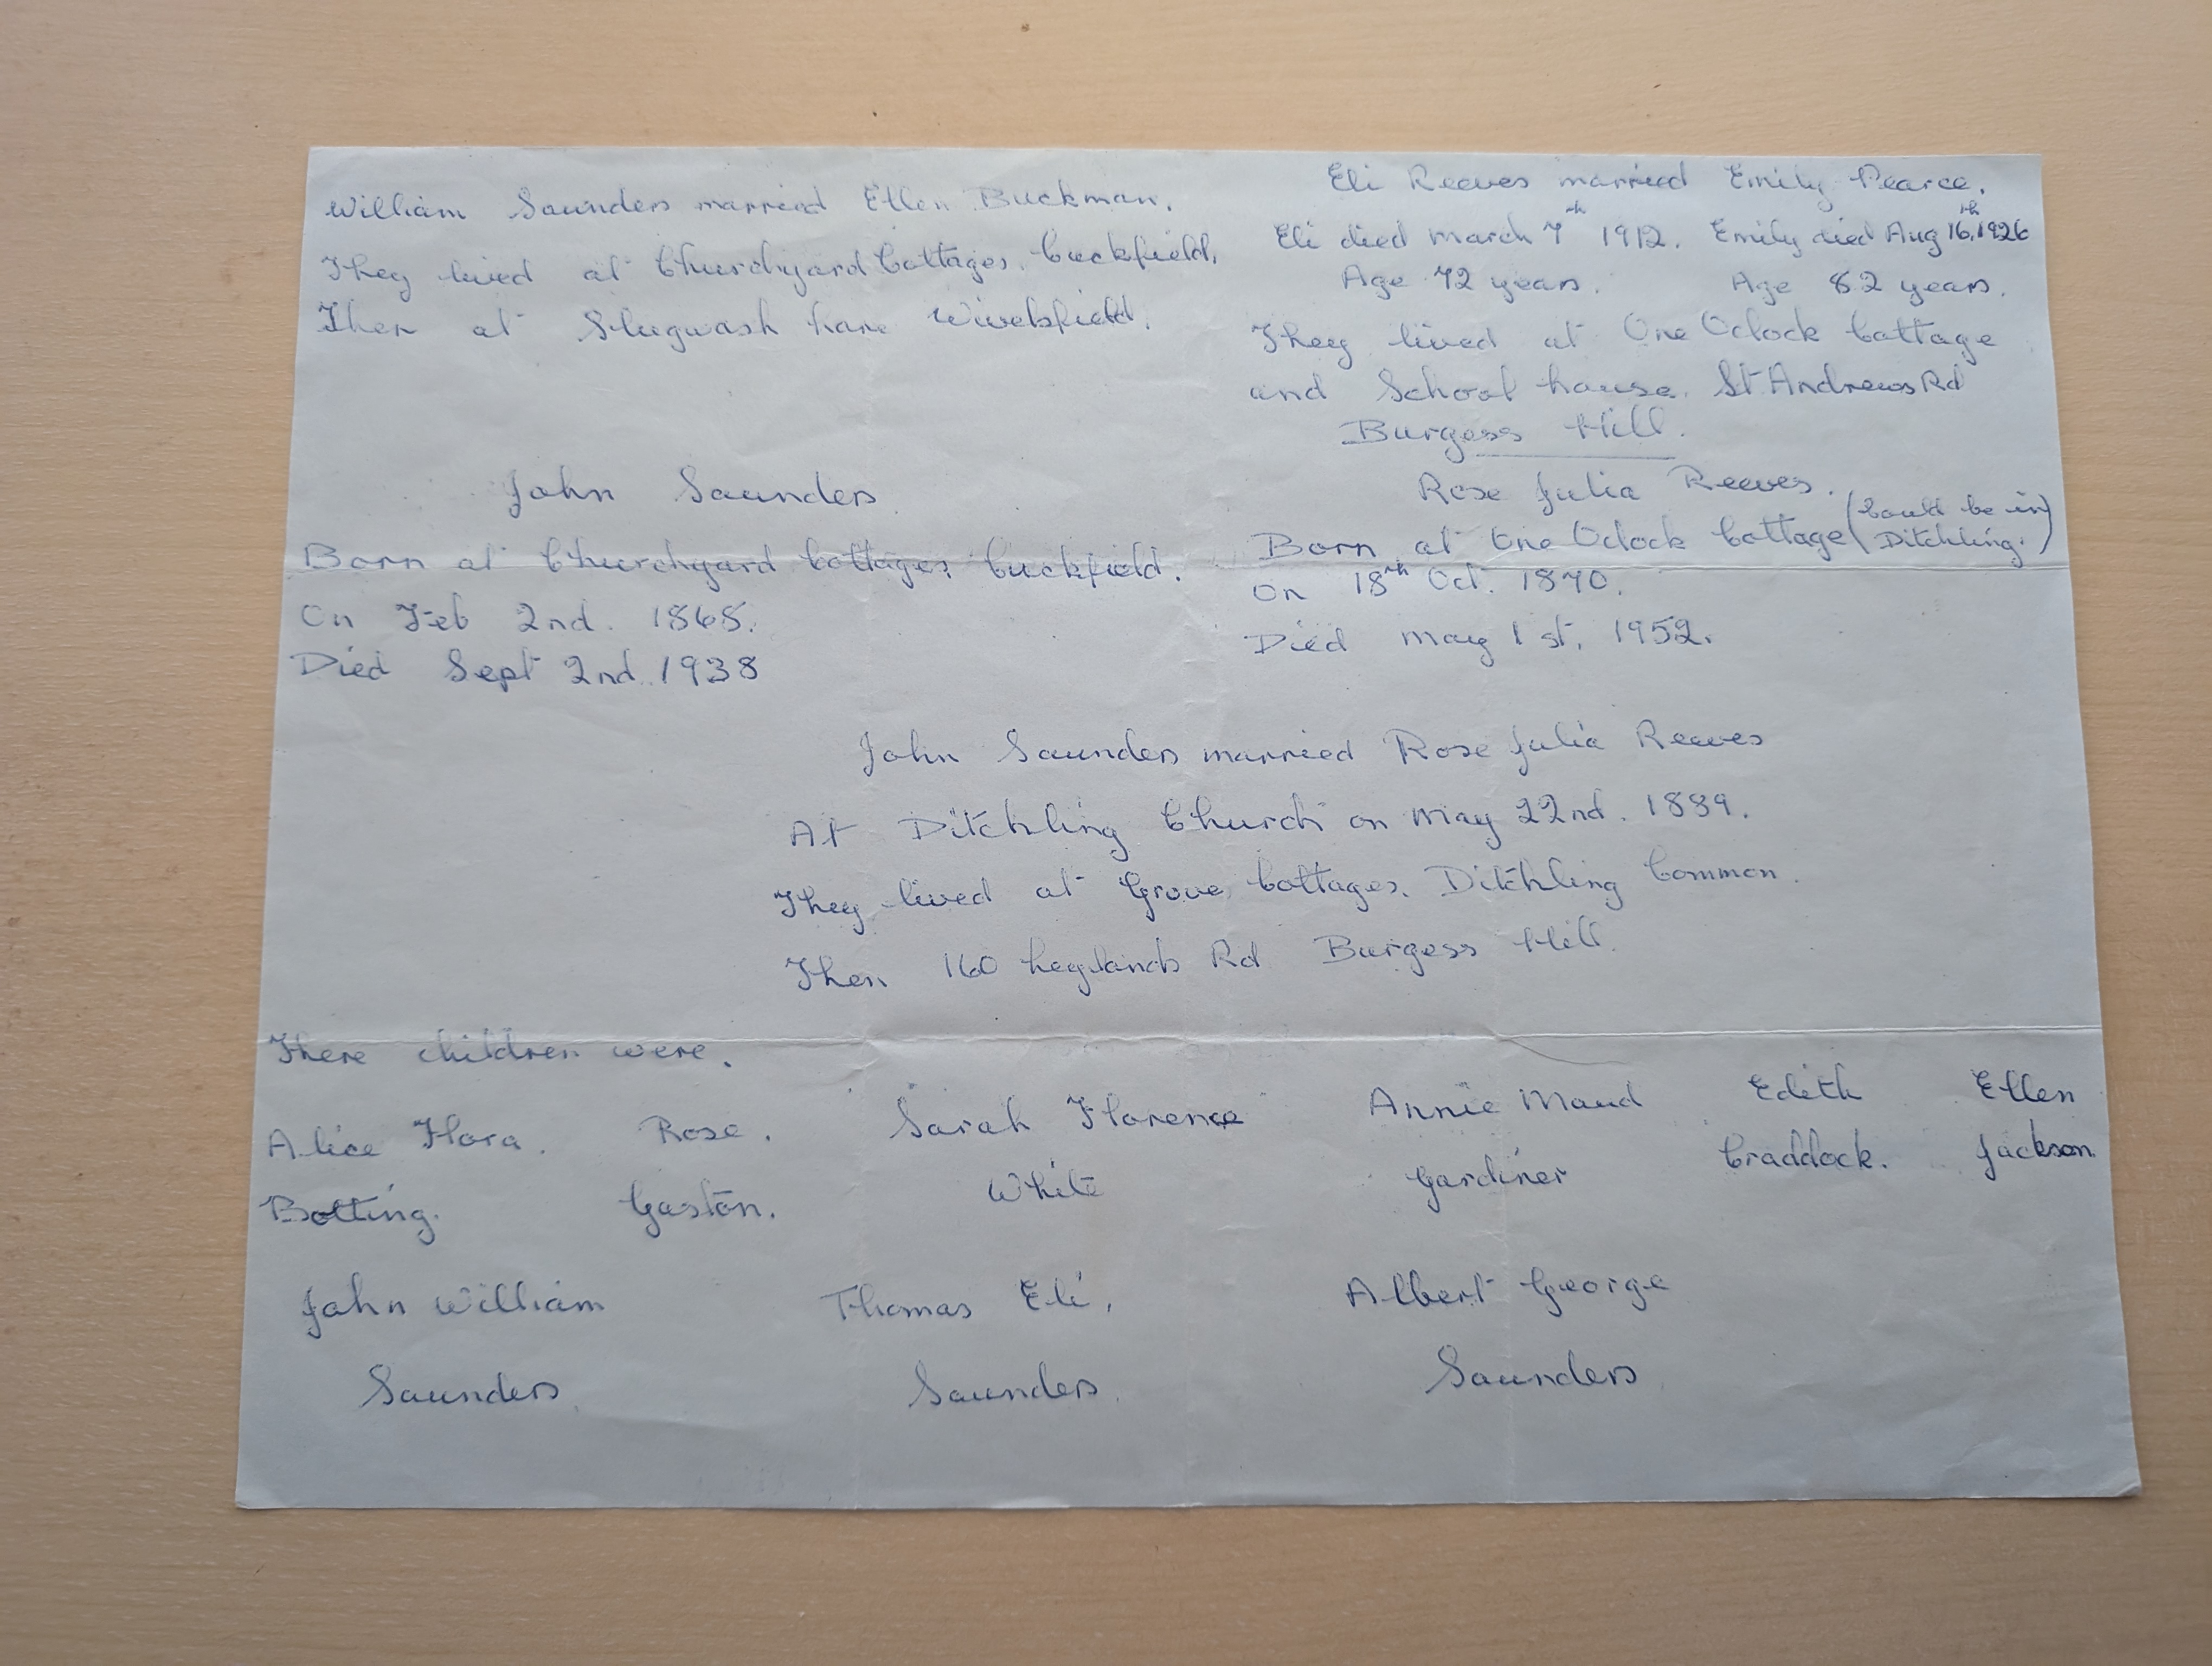 William Saunders married Ellen Buckman.
They lived at Churchyard Cottages, Cuckfield,
Then at Slugwash Lane Wivelsfield.
Eli Reeves married Emily Pearce.
Eli died March 7th 1912. Emily died Aug 16th, 1926
Age 72 years. Age 82 years.
They lived at One Oclock Cottage
and School house, St Andrews Rd
Burgess Hill.
John Saunders
Born at Churchyard Cottages Cuckfield.
On Feb 2nd. 1865.
Died Sept 2nd. 1938
Rose Julia Reeves.
Born at One Oclock Cottage (Could be in Ditchling.)
On 18th Oct. 1870.
Died May 1st, 1952.
John Saunders married Rose Julia Reeves
At Ditchling Church on May 22nd. 1889.
They lived at Grove Cottages, Ditchling Common.
Then 160 Leylands Rd Burgess Hill.
There children were.
Alice Flora. Rose. Sarah Florence Annie Maud Edith Ellen
Botting. Gaston. White Gardiner Craddock. Jackson.
John William Thomas Eli, Albert George
Saunders Saunders. Saunders